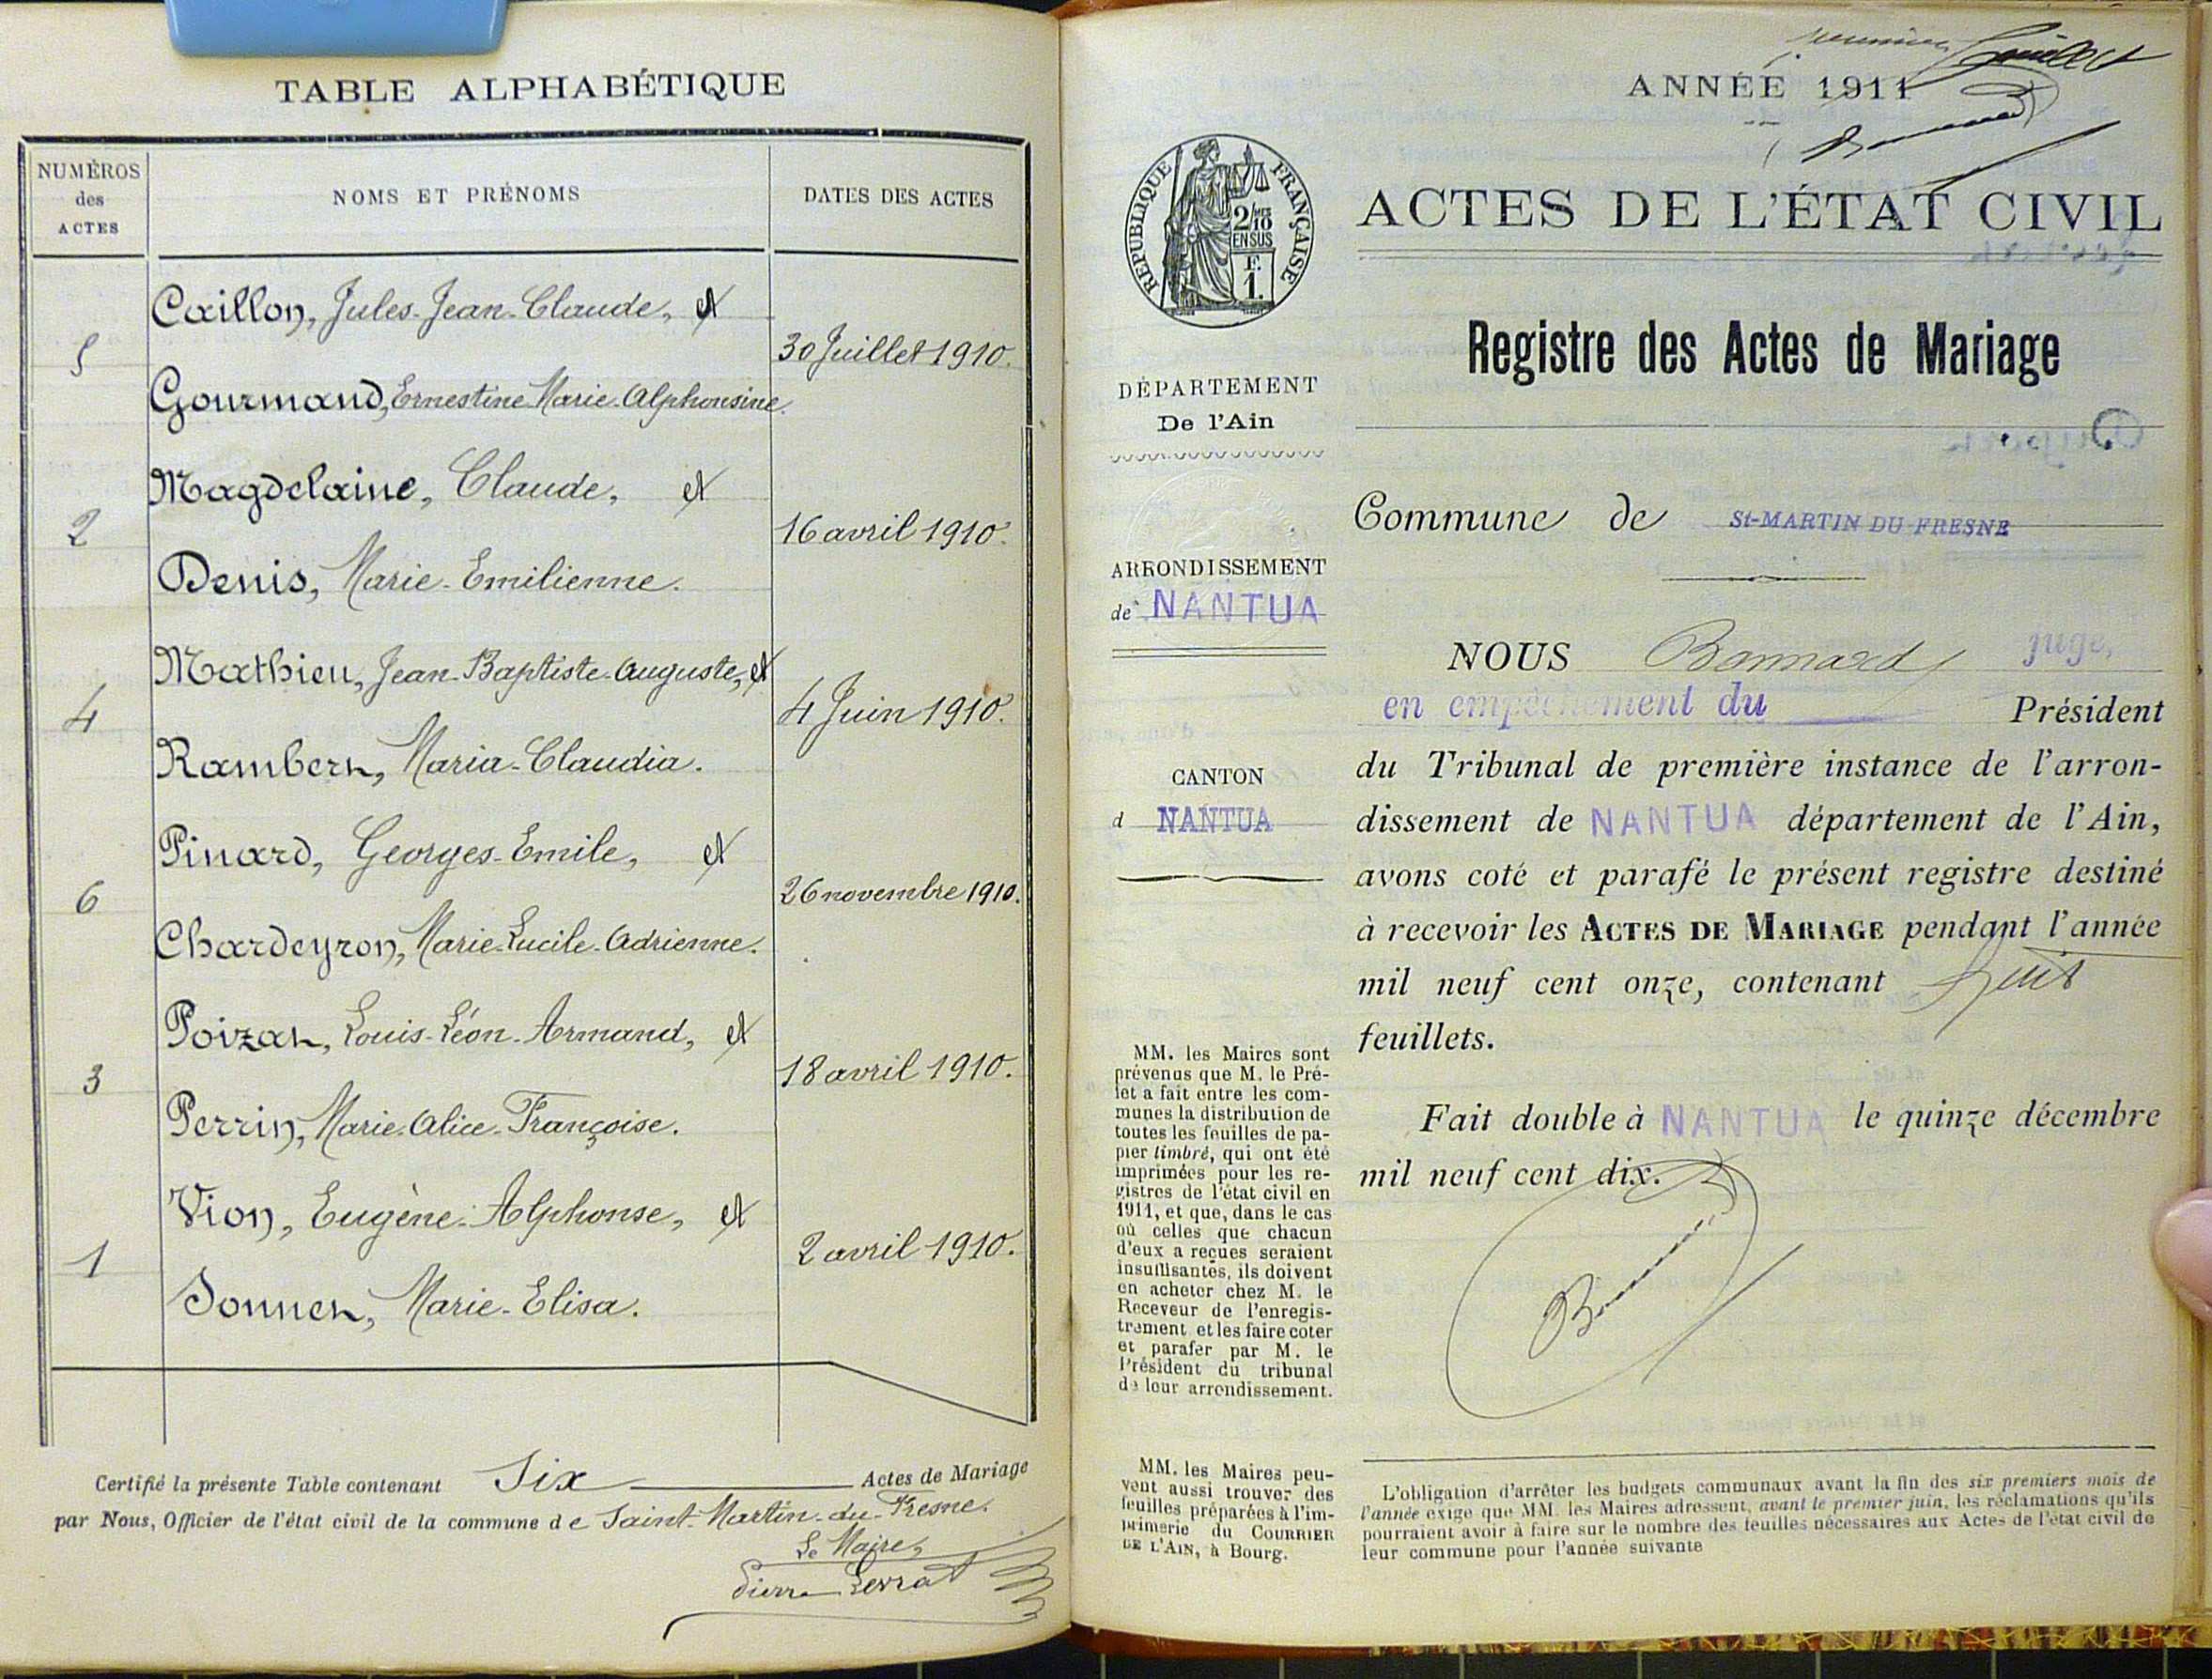 TABLE ALPHABÉTIQUE
NUMÉROS
des
ACTES
NOMS ET PRÉNOMS
DATES DES ACTES
Caillon, Jules-Jean-Claude, et
5
30 Juillet 1910.
Gourmand, Ernestine-Marie-Alphonsine.
Magdelaine, Claude, et
2
16 avril 1910.
Denis, Marie-Emilienne.
Mathieu, Jean-Baptiste-Auguste, et
4
4 Juin 1910.
Rambert, Maria-Claudia.
Pinard, Georges-Emile, et
6
26 novembre 1910.
Chardeyron, Marie-Lucile-Adrienne.
Poizat, Louis-Léon-Armand, et
3
18 avril 1910.
Perrin, Marie-Alice-Françoise.
Vion, Eugène-Alphonse, et
1
2 avril 1910.
Sonnet, Marie-Elisa.
Certifié la présente Table contenant Six Actes de Mariage
par Nous, Officier de l'état civil de la commune de Saint-Martin-du-Fresne.
Le Maire,
Pierre Levrat
ANNÉE 1911
RÉPUBLIQUE FRANÇAISE
2/10
EN SUS
F.
1.
ACTES DE L'ÉTAT CIVIL
Registre des Actes de Mariage
DÉPARTEMENT
De l'Ain
Commune de St-MARTIN DU FRESNE
ARRONDISSEMENT
de NANTUA
CANTON
d NANTUA
NOUS Bonnard, juge,
en empêchement du Président
du Tribunal de première instance de l'arron-
dissement de NANTUA département de l'Ain,
avons coté et parafé le présent registre destiné
à recevoir les ACTES DE MARIAGE pendant l'année
mil neuf cent onze, contenant huit
feuillets.
Fait double à NANTUA le quinze décembre
mil neuf cent dix.
MM. les Maires sont
prévenus que M. le Pré-
fet a fait entre les com-
munes la distribution de
toutes les feuilles de pa-
pier timbré, qui ont été
imprimées pour les re-
gistres de l'état civil en
1911, et que, dans le cas
où celles que chacun
d'eux a reçues seraient
insuffisantes, ils doivent
en acheter chez M. le
Receveur de l'enregis-
trement et les faire coter
et parafer par M. le
Président du tribunal
de leur arrondissement.
MM. les Maires peu-
vent aussi trouver des
feuilles préparées à l'im-
primerie du COURRIER
DE L'AIN, à Bourg.
L'obligation d'arrêter les budgets communaux avant la fin des six premiers mois de
l'année exige que MM. les Maires adressent, avant le premier juin, les réclamations qu'ils
pourraient avoir à faire sur le nombre des feuilles nécessaires aux Actes de l'état civil de
leur commune pour l'année suivante